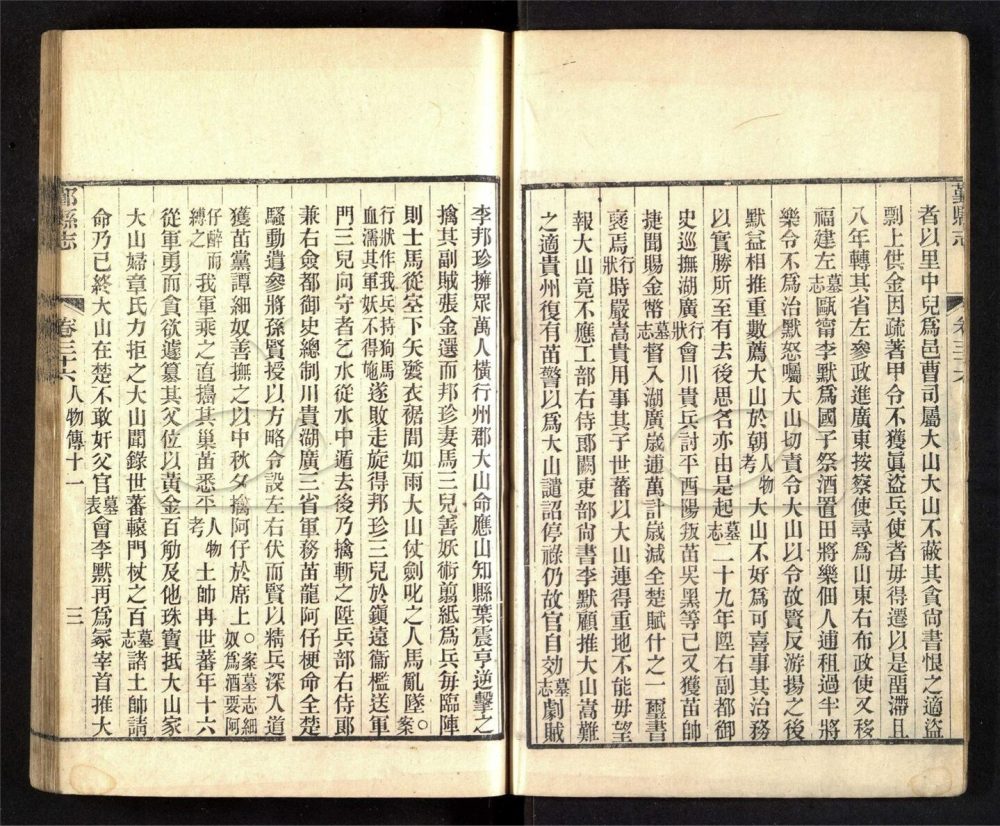 鄞縣志
卷三十六
者以里中兒爲邑曹司屬大山大山不蔽其貪尙書恨之適盜
剽上供金因疏著甲令不獲眞盜兵使者毋得遷以是畱滯且
八年轉其省左參政進廣東按察使尋爲山東右布政使又移
福建左墓志甌甯李默爲國子祭酒置田將樂佃人逋租過半將
樂令不爲治默怒囑大山切責令大山以令故賢反游揚之後
默益相推重數薦大山於朝人物考大山不好爲可喜事其治務
以實勝所至有去後思名亦由是起墓志二十九年陞右副都御
史巡撫湖廣行狀會川貴兵討平酉陽叛苗吴黑等已又獲苗帥
捷聞賜金幣墓志督入湖廣歲逋萬計歲減全楚賦什之一璽書
褒焉行狀時嚴嵩貴用事其子世蕃以大山連得重地不能毋望
報大山竟不應工部右侍郎闕吏部尙書李默顧推大山嵩難
之適貴州復有苗警以爲大山譴詔停祿仍故官自効墓志劇賊
李邦珍擁眾萬人橫行州郡大山命應山知縣葉震亨逆擊之
擒其副賊張金選而邦珍妻馬三兒善妖術剪紙爲兵每臨陣
則士馬從空下矢發衣裾間如雨大山仗劍叱之人馬亂墜○案
行狀作我兵持狗馬血濡其軍妖不得施遂敗走旋得邦珍三兒於鎭遠衞檻送軍
門三兒向守者乞水從水中遁去後乃擒斬之陞兵部右侍郎
兼右僉都御史總制川貴湖廣三省軍務苗龍阿仔梗命全楚
騷動遣參將孫賢授以方略令設左右伏而賢以精兵深入道
獲苗黨譚細奴善撫之以中秋夕擒阿仔於席上○案墓志細奴爲酒要阿
仔醉而縛之我軍乘之直搗其巢苗悉平人物考土帥冉世蕃年十六
從軍勇而貪欲遽簒其父位以黃金百觔及他珠寶抵大山家
大山婦章氏力拒之大山聞錄世蕃轅門杖之百墓志諸土帥請
命乃已終大山在楚不敢奸父官墓表會李默再爲冢宰首推大
鄞縣志
卷三十六 人物傳十一
三